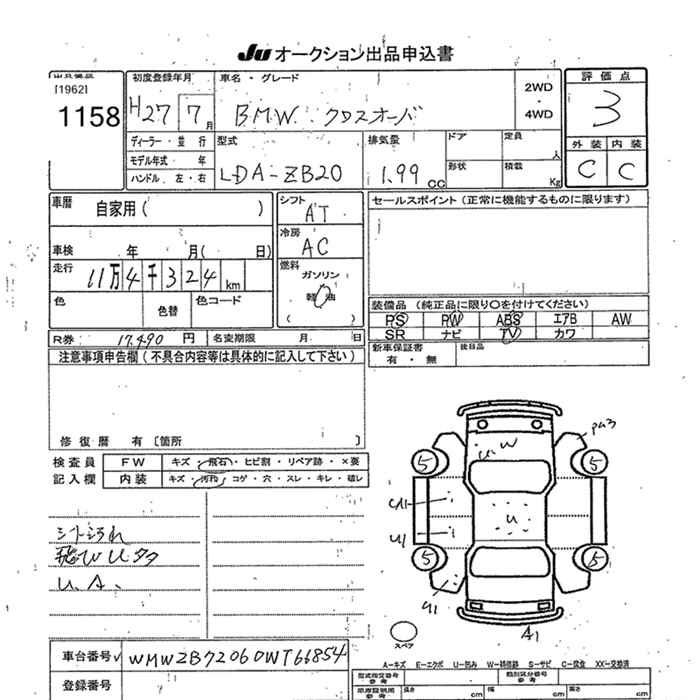 JU オークション出品申込書
[1962]
1158
初度登録年月
H27 7月
車名・グレード
BMW クロスオーバ
2WD
・
4WD
評価点
3
外装 内装
C C
ディーラー・並行
モデル年式 年
ハンドル 左・右
型式
LDA-ZB20
排気量
1.99 cc
ドア
定員 人
形状
積載 Kg
車暦 自家用( )
車検 年 月( 日)
走行 11万4千324km
色
色替
色コード
シフト AT
冷房 AC
燃料
ガソリン
軽油
( )
セールスポイント(正常に機能するものに限ります)
装備品(純正品に限り○を付けてください)
PS PW ABS エアB AW
SR ナビ TV カワ
新車保証書
有・無
後日品
R券 17,490 円
名変期限 月 日
注意事項申告欄(不具合内容等は具体的に記入して下さい)
修復暦 有〔箇所 〕
検査員 FW キズ・飛石・ヒビ割・リペア跡・×要
記入欄 内装 キズ・汚れ・コゲ・穴・スレ・キレ・破レ
シートよごれ
飛びUタタ
U.A.
W
U
5
5
5
5
U
U1
A1
スペア
A-キズ E-エクボ U-凹み W-補修跡 S-サビ C-腐食 XX-交換済
車台番号 WMWZB72060WT66854
登録番号
型式指定番号
参考
類別区分番号
参考
車庫証明用
参考
長さ cm 幅 cm 高さ cm